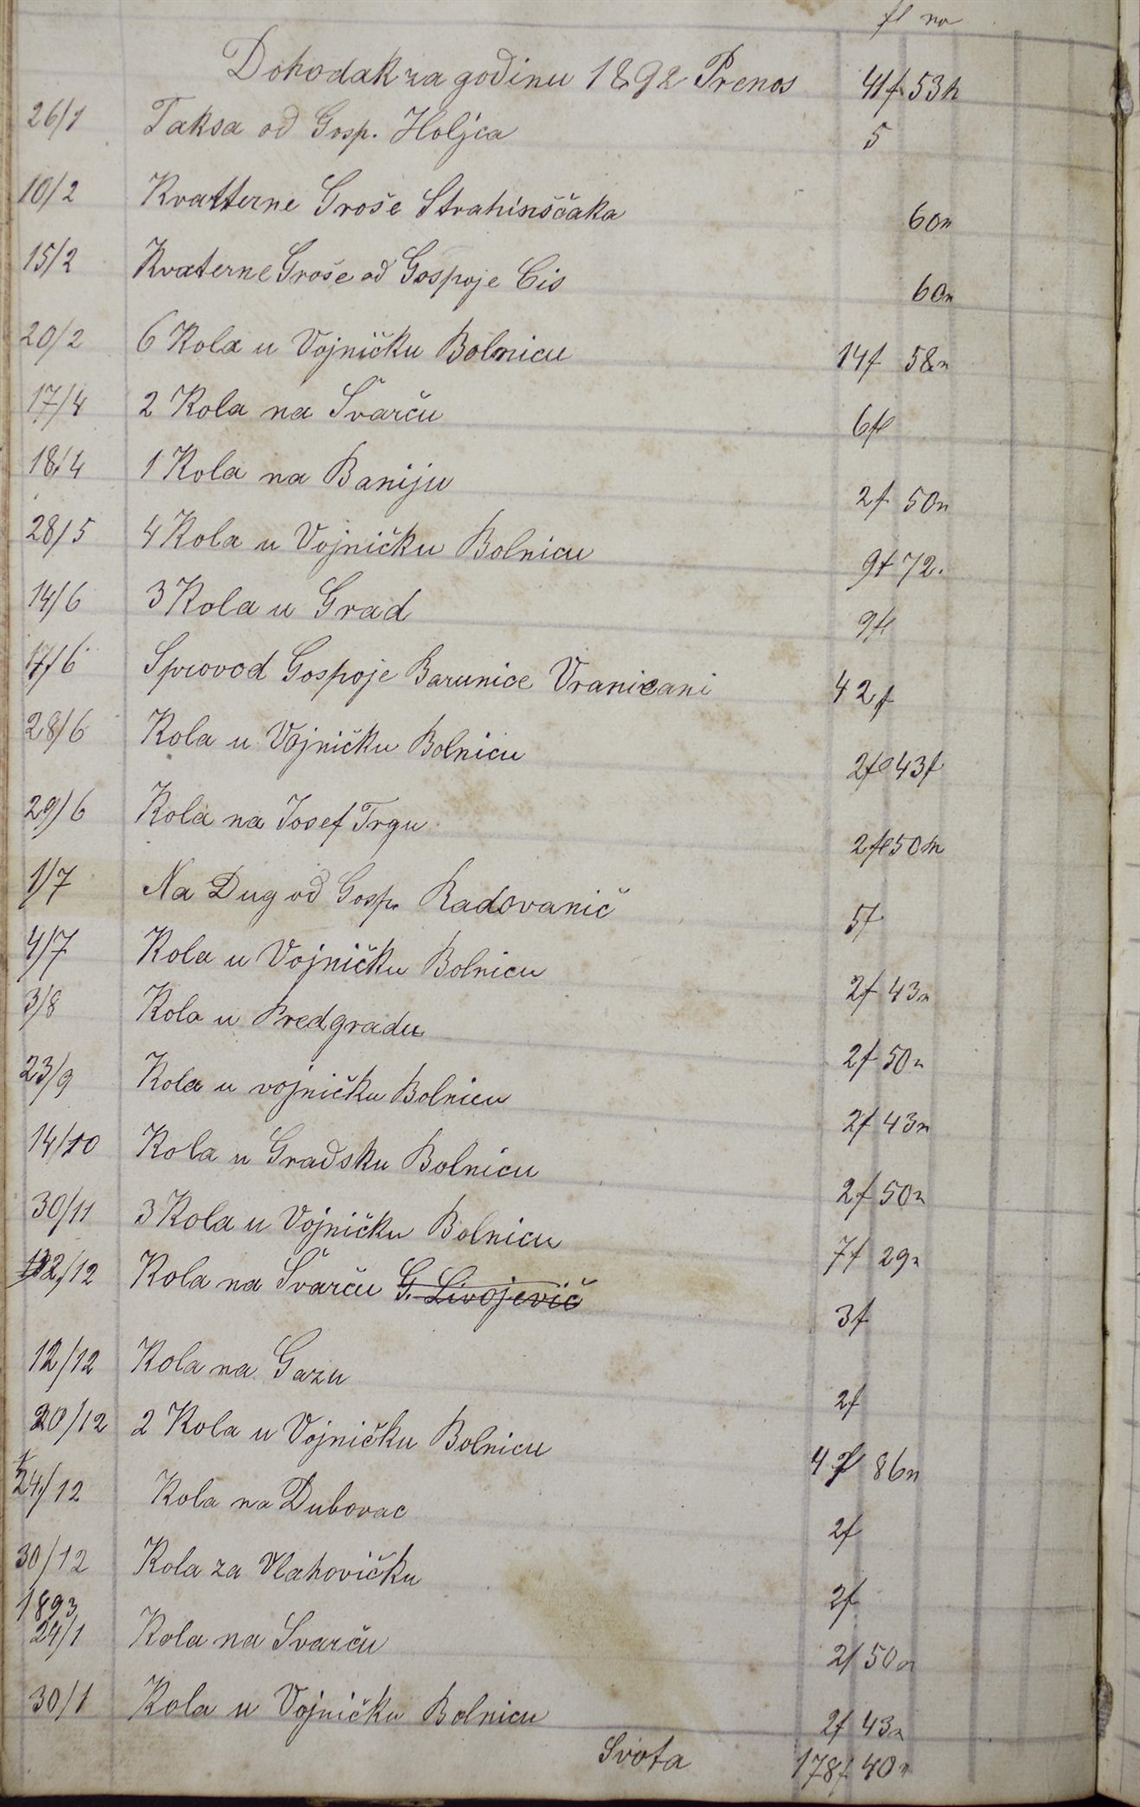 fl nv
Dohodak za godinu 1892 Prenos 41f 53n
26/1 Taksa od Gosp. Holjca 5
10/2 Kvatterne Groše Strahinščaka 60n
15/2 Kvaterne Groše od Gospoje Cis 60n
20/2 6 Kola u Vojničku Bolnicu 14f 58n
17/4 2 Kola na Švarču 6fl
18/4 1 Kola na Baniju 2f 50n
28/5 4 Kola u Vojničku Bolnicu 9f 72.
14/6 3 Kola u Grad 9fl
17/6 Sprovod Gospoje Barunice Vranicani 42f
28/6 Kola u Vojničku Bolnicu 2fl 43f
29/6 Kola na Josef Trgu 2fl 50n
1/7 Na Dug od Gosp. Radovanič 5f
4/7 Kola u Vojničku Bolnicu 2f 43n
3/8 Kola u Predgradu 2f 50n
23/9 Kola u vojničku Bolnicu 2f 43n
14/10 Kola u Gradsku Bolnicu 2f 50n
30/11 3 Kola u Vojničku Bolnicu 7f 29n
12/12 Kola na Švarču G. Livojevič 3f
12/12 Kola na Gazu 2f
20/12 2 Kola u Vojničku Bolnicu 4fl 86n
24/12 Kola na Dubovac 2f
30/12 Kola za Vlahovičku 2f
1893
24/1 Kola na Svarču 2f 50n
30/1 Kola u Vojničku Bolnicu 2f 43n
Svota 178f 40n